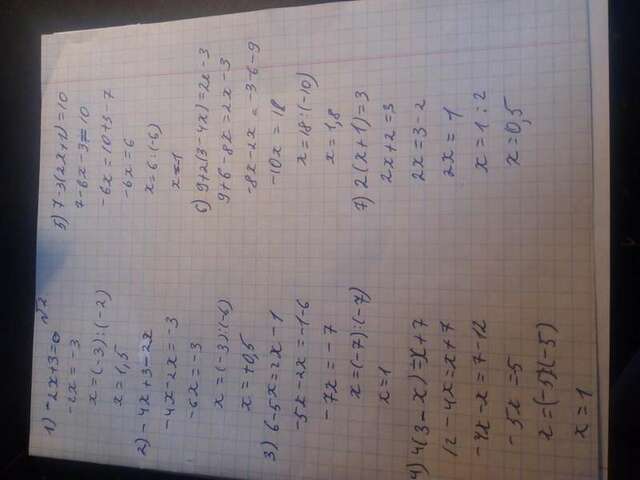 №2
1) -2x+3=0
-2x=-3
x=(-3):(-2)
x=1,5
2) -4x+3=2x
-4x-2x=-3
-6x=-3
x=(-3):(-6)
x=+0,5
3) 6-5x=2x-1
-5x-2x=-1-6
-7x=-7
x=(-7):(-7)
x=1
4) 4(3-x)=x+7
12-4x=x+7
-4x-x=7-12
-5x=-5
x=(-5)(-5)
x=1
5) 7-3(2x+1)=10
7-6x-3=10
-6x=10+3-7
-6x=6
x=6:(-6)
x=-1
6) 9+2(3-4x)=2x-3
9+6-8x=2x-3
-8x-2x=-3-6-9
-10x=18
x=18:(-10)
x=1,8
7) 2(x+1)=3
2x+2=3
2x=3-2
2x=1
x=1:2
x=0,5